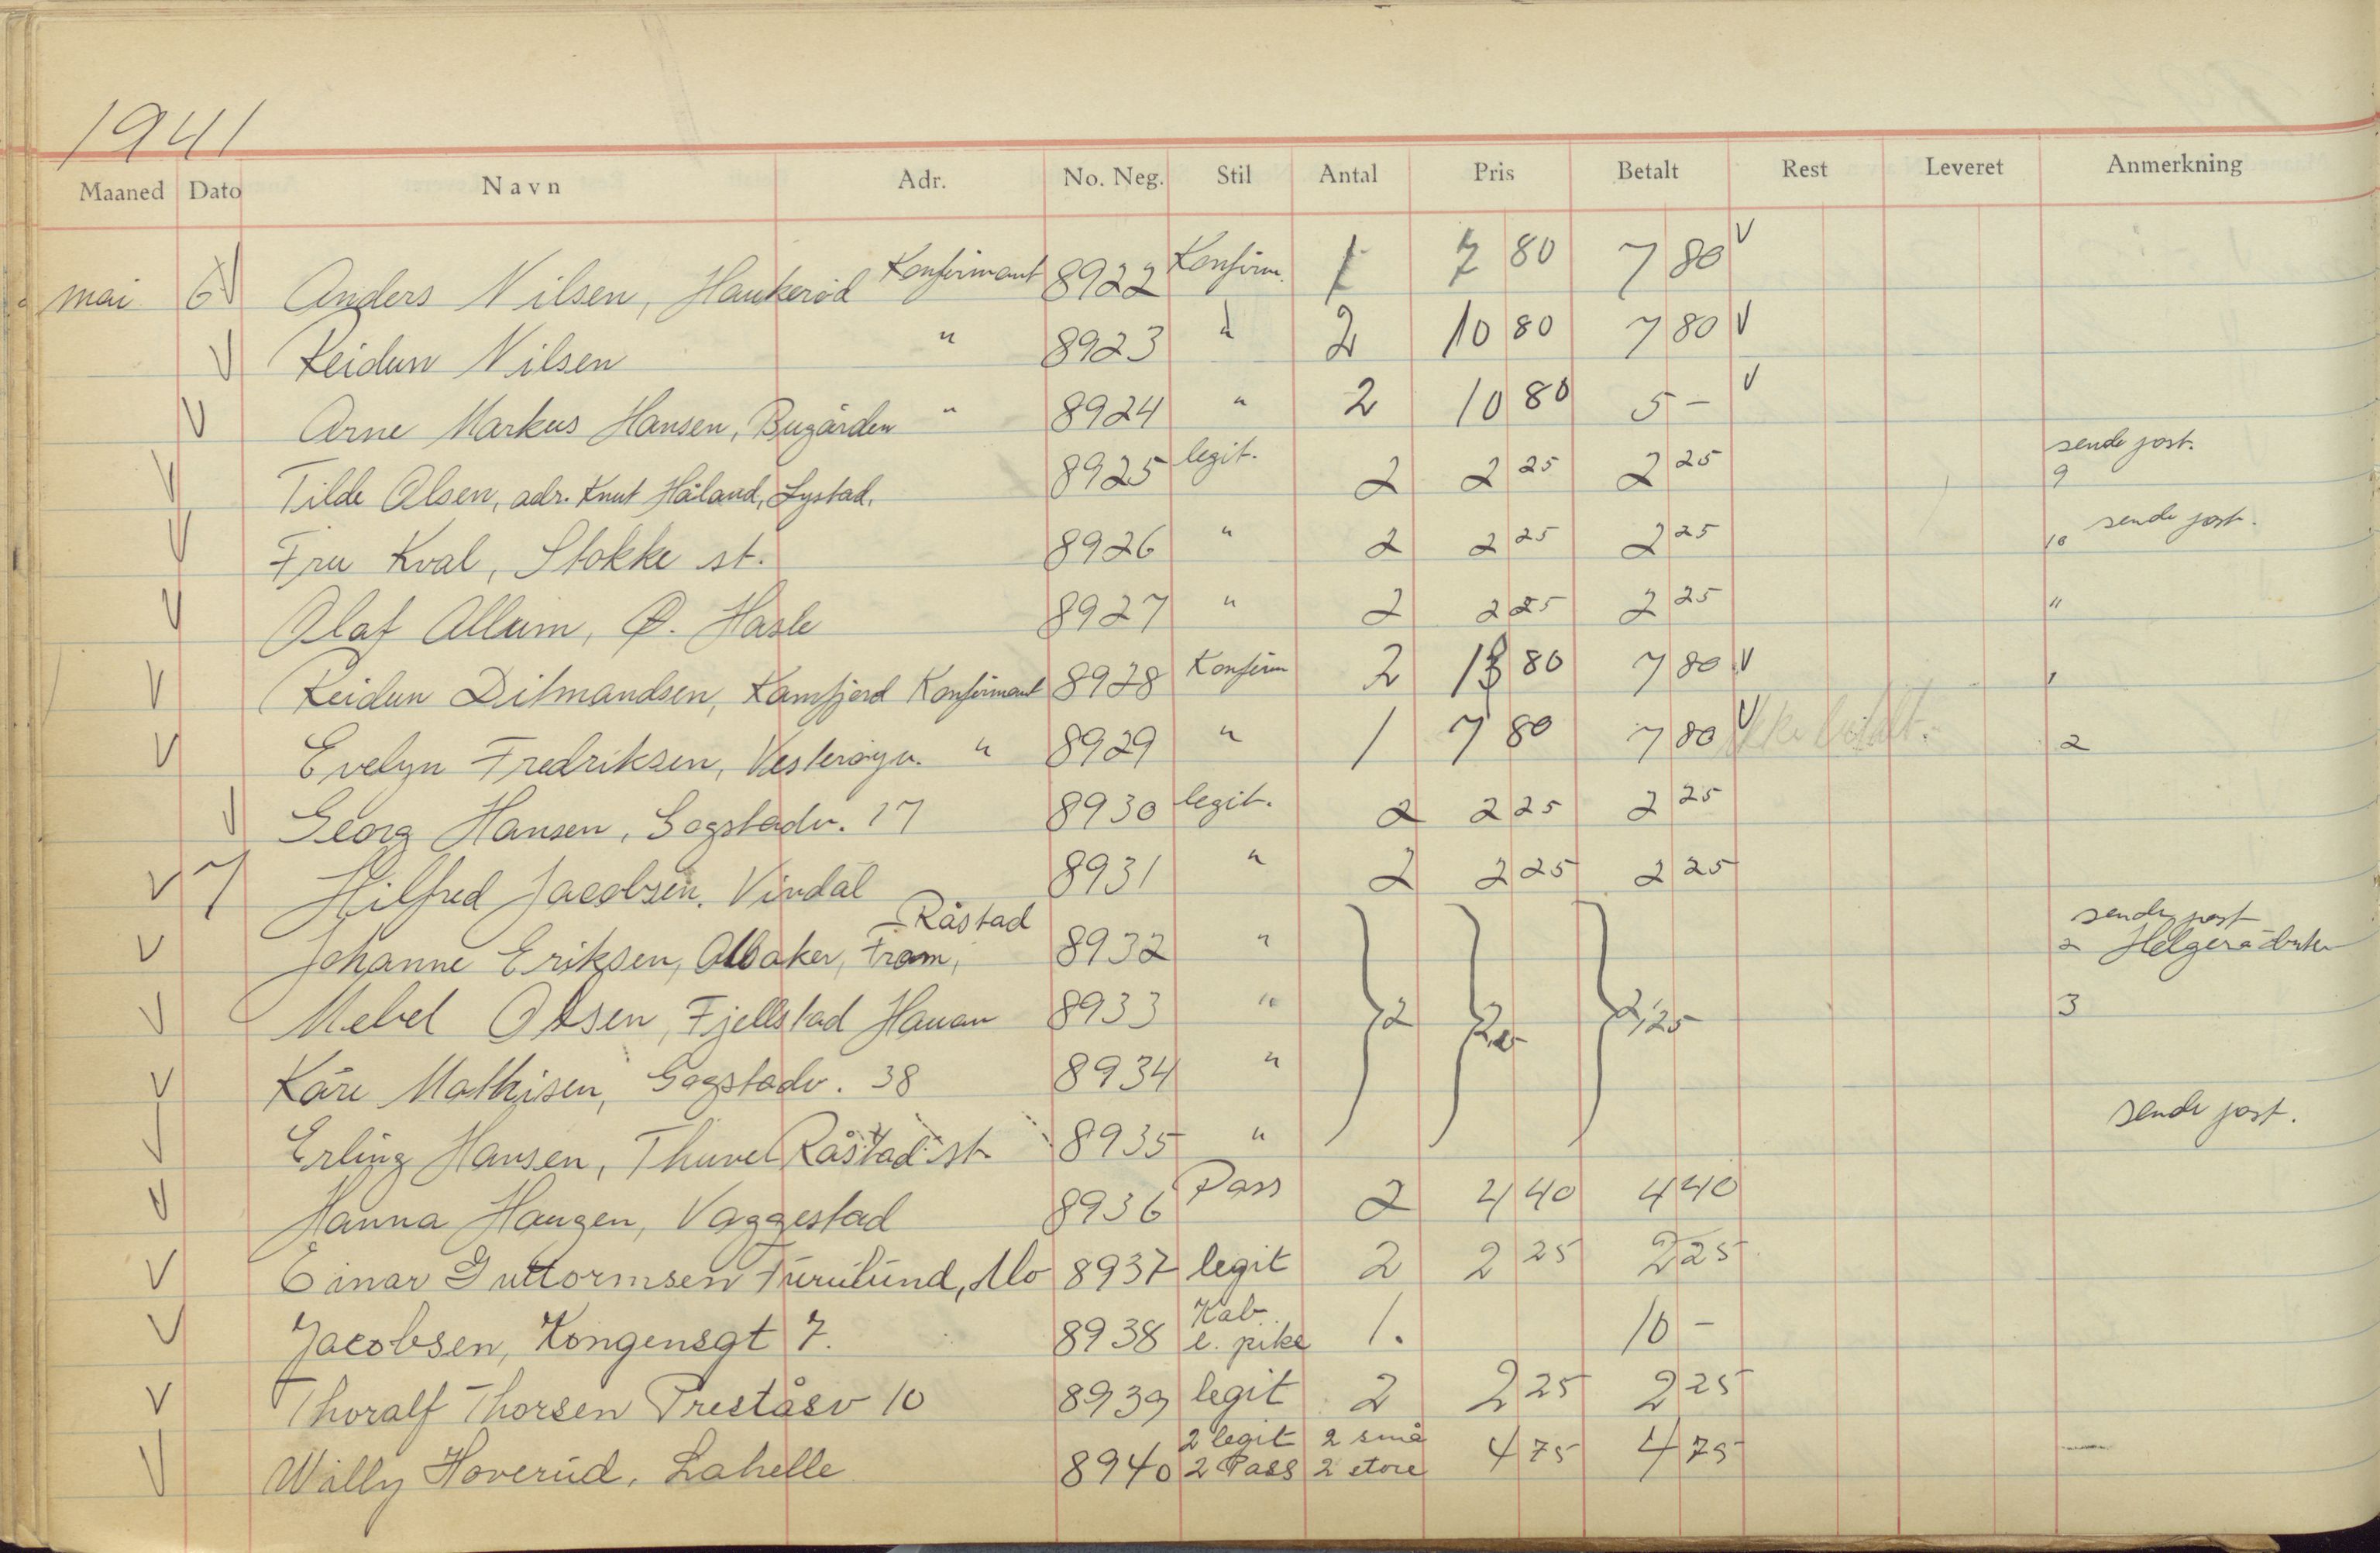 1941
Maaned Dato Navn Adr. No. Neg. Stil Antal Pris Betalt Rest Leveret Anmerkning
mai 6 Anders Nilsen, Haukerød Konfirmant 8922 Konfirm. 1 7 80 7 80
Reidun Nilsen " 8923 " 2 10 80 7 80
Arne Markus Hansen, Bugården " 8924 " 2 10 80 5 -
Tilde Olsen, adr. Knut Håland, Lystad. 8925 legit. 2 2 25 2 25 sende post. 9
Fru Kval, Stokke st. 8926 " 2 2 25 2 25 10 sende post.
Olaf Allum, Ø. Hasle 8927 " 2 2 25 2 25 "
Reidun Ditmandsen, Kamfjord Konfirmant 8928 Konfirm 2 80 7 80 1
Evelyn Fredriksen, Vesterøyv. " 8929 " 1 7 80 7 80 Ikke betalt. 2
Georg Hansen, Gogstadv. 17 8930 legit. 2 2 25 2 25
7 Hilfred Jacobsen, Vindal 8931 " 2 2 25 2 25
Johanne Eriksen, Olbaker, Fram, Råstad 8932 " sende post 2
Mebel Olsen, Fjellstad Hauan 8933 " 2 2,25 3
Kåre Mathisen, Gogstadv. 38 8934 "
Erling Hansen, Thuvel Råstad st 8935 " sende post.
Hanna Haugen, Vaggestad 8936 Pass 2 4 40 4 40
Einar Guttormsen Furulund, Mo 8937 legit 2 2 25 2 25
Jacobsen, Kongensgt 7. 8938 Kab. l. pike 1. 10 -
Thoralf Thorsen Preståsv 10 8939 legit 2 2 25 2 25
Willy Hoverud, Lahelle 8940 2 legit 2 små 2 Pass 2 store 4 75 4 75